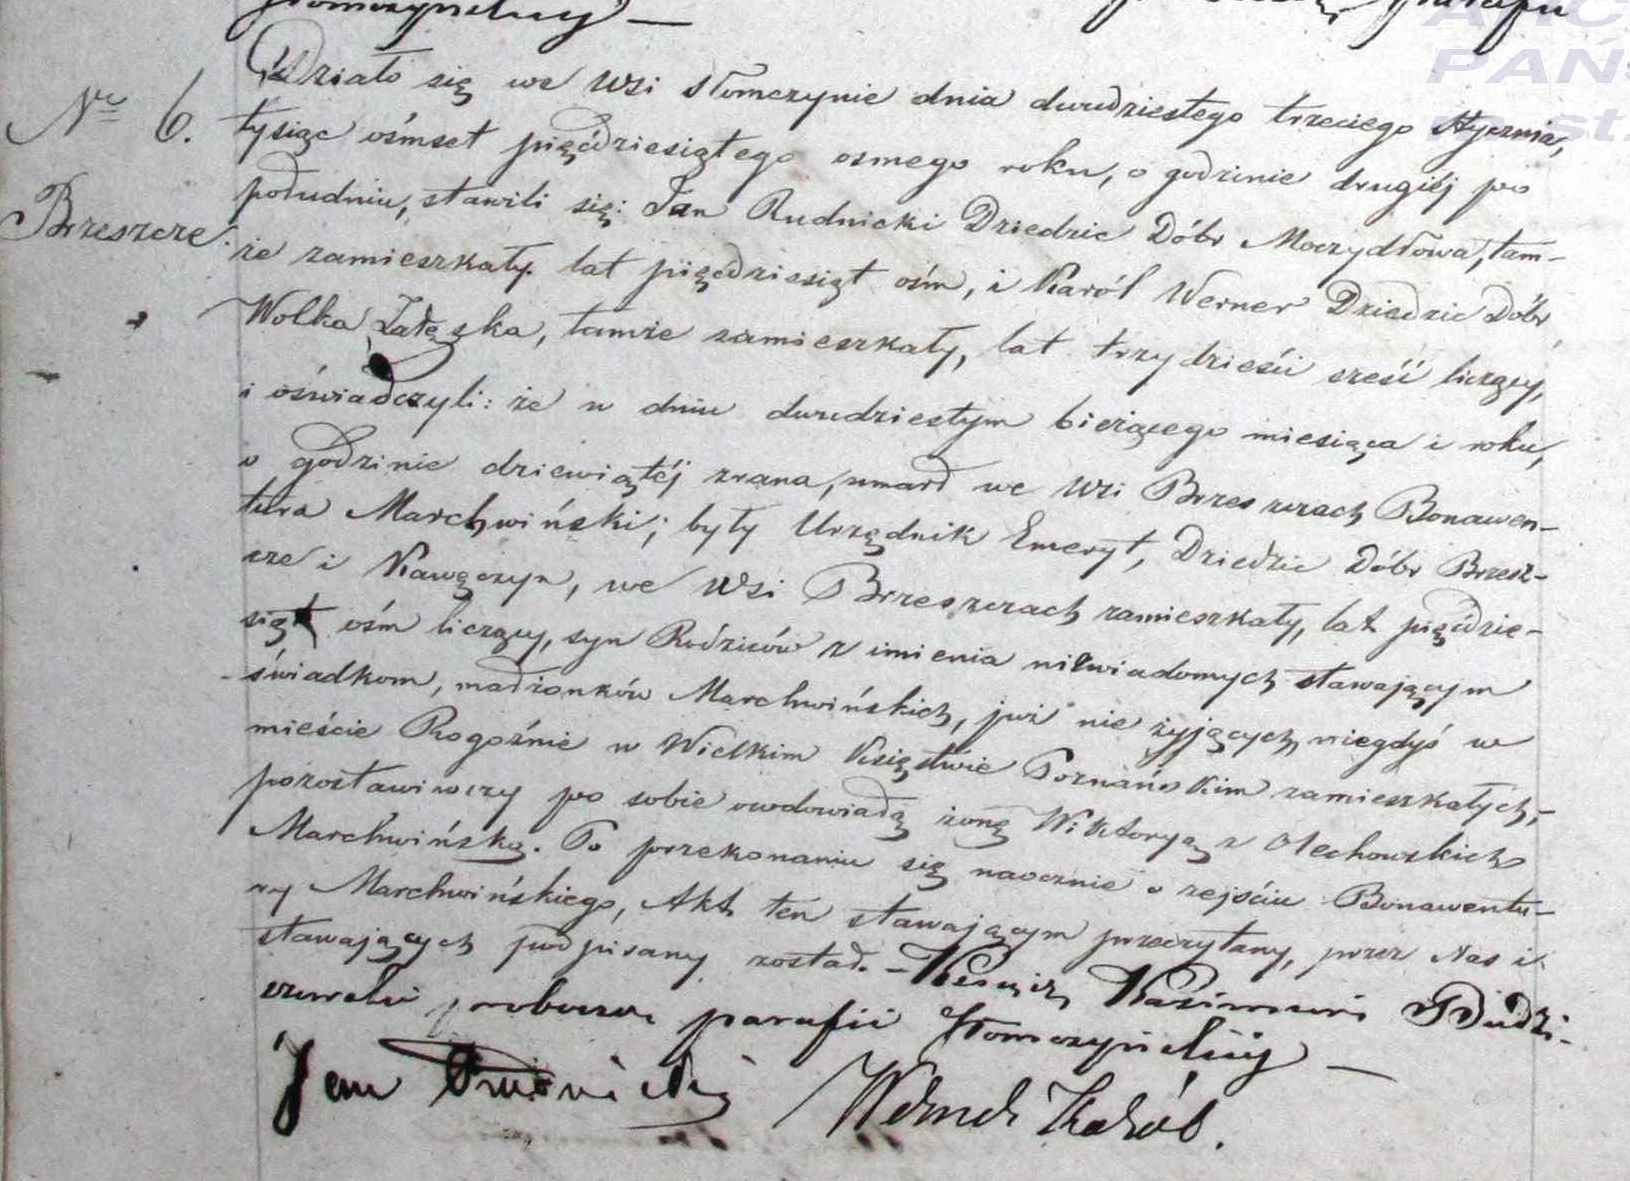 Słomczyńskiéj —
№ 6.
Brzeszcze.
Działo się we Wsi Słomczynie dnia dwudziestego trzeciego Stycznia,
tysiąc ośmset pięćdziesiątego osmego roku, o godzinie drugiéj po
południu, stawili się: Jan Rudnicki Dziedzic Dóbr Moczydłowa, tam-
że zamieszkały lat pięćdziesiąt ośm, i Karól Werner Dziedzic Dóbr
Wolka Załęska, tamże zamieszkały, lat trzydzieści sześć liczący,
i oświadczyli: że w dniu dwudziestym bieżącego miesiąca i roku,
o godzinie dziewiątéj zrana, umarł we Wsi Brzeszczach Bonawen-
tura Marchwiński; były Urzędnik Emeryt, Dziedzic Dóbr Brzesz-
cze i Kawęczyn, we Wsi Brzeszczach zamieszkały, lat pięćdzie-
siąt ośm liczący, syn Rodziców z imienia niewiadomych stawającym
świadkom, małżonków Marchwińskich, już nie żyjących, niegdyś w
mieście Rogoźnie w Wielkim Księstwie Poznańskim zamieszkałych,-
pozostawiwszy po sobie owdowiałą żonę Wiktoryą z Olechowskich
Marchwińską. Po przekonaniu się naocznie o zejściu Bonawentu-
ry Marchwińskiego, Akt ten stawającym przeczytany, przez Nas i
stawających podpisany został. – Ksiądz Kazimierz Budzi-
szewski proboszcz parafii Słomczyńskiéj —
Jan Rudnicki Werner Karól.